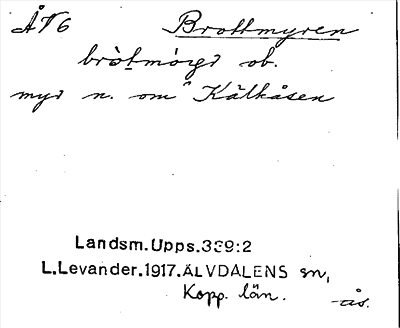 ÅV6 Brottmyren
bròtmórgɂ ob.
myr n. om Kälkåsen
Landsm.Upps.339:2
L.Levander.1917.ÄLVDALENS sn,
Kopp. län.
-ås.